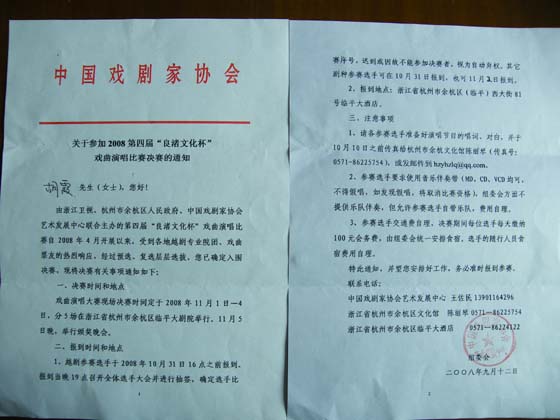 中国戏剧家协会
关于参加2008第四届“良渚文化杯”
戏曲演唱比赛决赛的通知
胡霞 先生（女士），您好！
由浙江卫视、杭州市余杭区人民政府、中国戏剧家协会
艺术发展中心联合主办的第四届“良渚文化杯”戏曲演唱比
赛自2008年4月开展以来，受到各地越剧专业院团、戏曲
票友的热烈响应，经过预选、复选层层选拔，您已确定入围
决赛。现将决赛有关事项通知如下：
一、决赛时间和地点
戏曲演唱大赛现场决赛时间定于2008年11月1日—4
日，分5场在浙江省杭州市余杭区临平大剧院举行。11月5
日晚，举行颁奖晚会。
二、报到时间和地点
1、越剧参赛选手于2008年10月31日16点之前报到，
报到当晚19点召开全体选手大会并进行抽签，确定选手比
赛序号，迟到或因故不能参加决赛者，视为自动弃权。其它
剧种参赛选手可在10月31日报到，也可11月2日报到。
2、报到地点：浙江省杭州市余杭区（临平）西大街81
号临平大酒店。
三、注意事项
1、请各参赛选手准备好演唱节目的唱词、对白，并于
10月10日之前传真给杭州市余杭文化馆陈丽琴（传真号：
0571-86225754），或发邮件到hzyhzlq@qq.com.
2、参赛选手要求使用音乐伴奏带（MD、CD、VCD均可，
不得假唱，如发现假唱，将取消比赛资格）。组委会方面不
提供乐队伴奏，但允许参赛选手自带乐队，费用自理。
3、参赛选手交通费自理，决赛期间每位选手每天缴纳
100元会务费，由组委会统一安排食宿。选手的随行人员食
宿费用自理。
特此通知，并望您安排好工作，务必准时报到参赛。
联系电话：
中国戏剧家协会艺术发展中心 王佐民 13901164296
浙江省杭州市余杭区文化馆 陈丽琴 0571-86225754
浙江省杭州市余杭区临平大酒店 0571-86224122
组委会
二00八年九月十二日
2